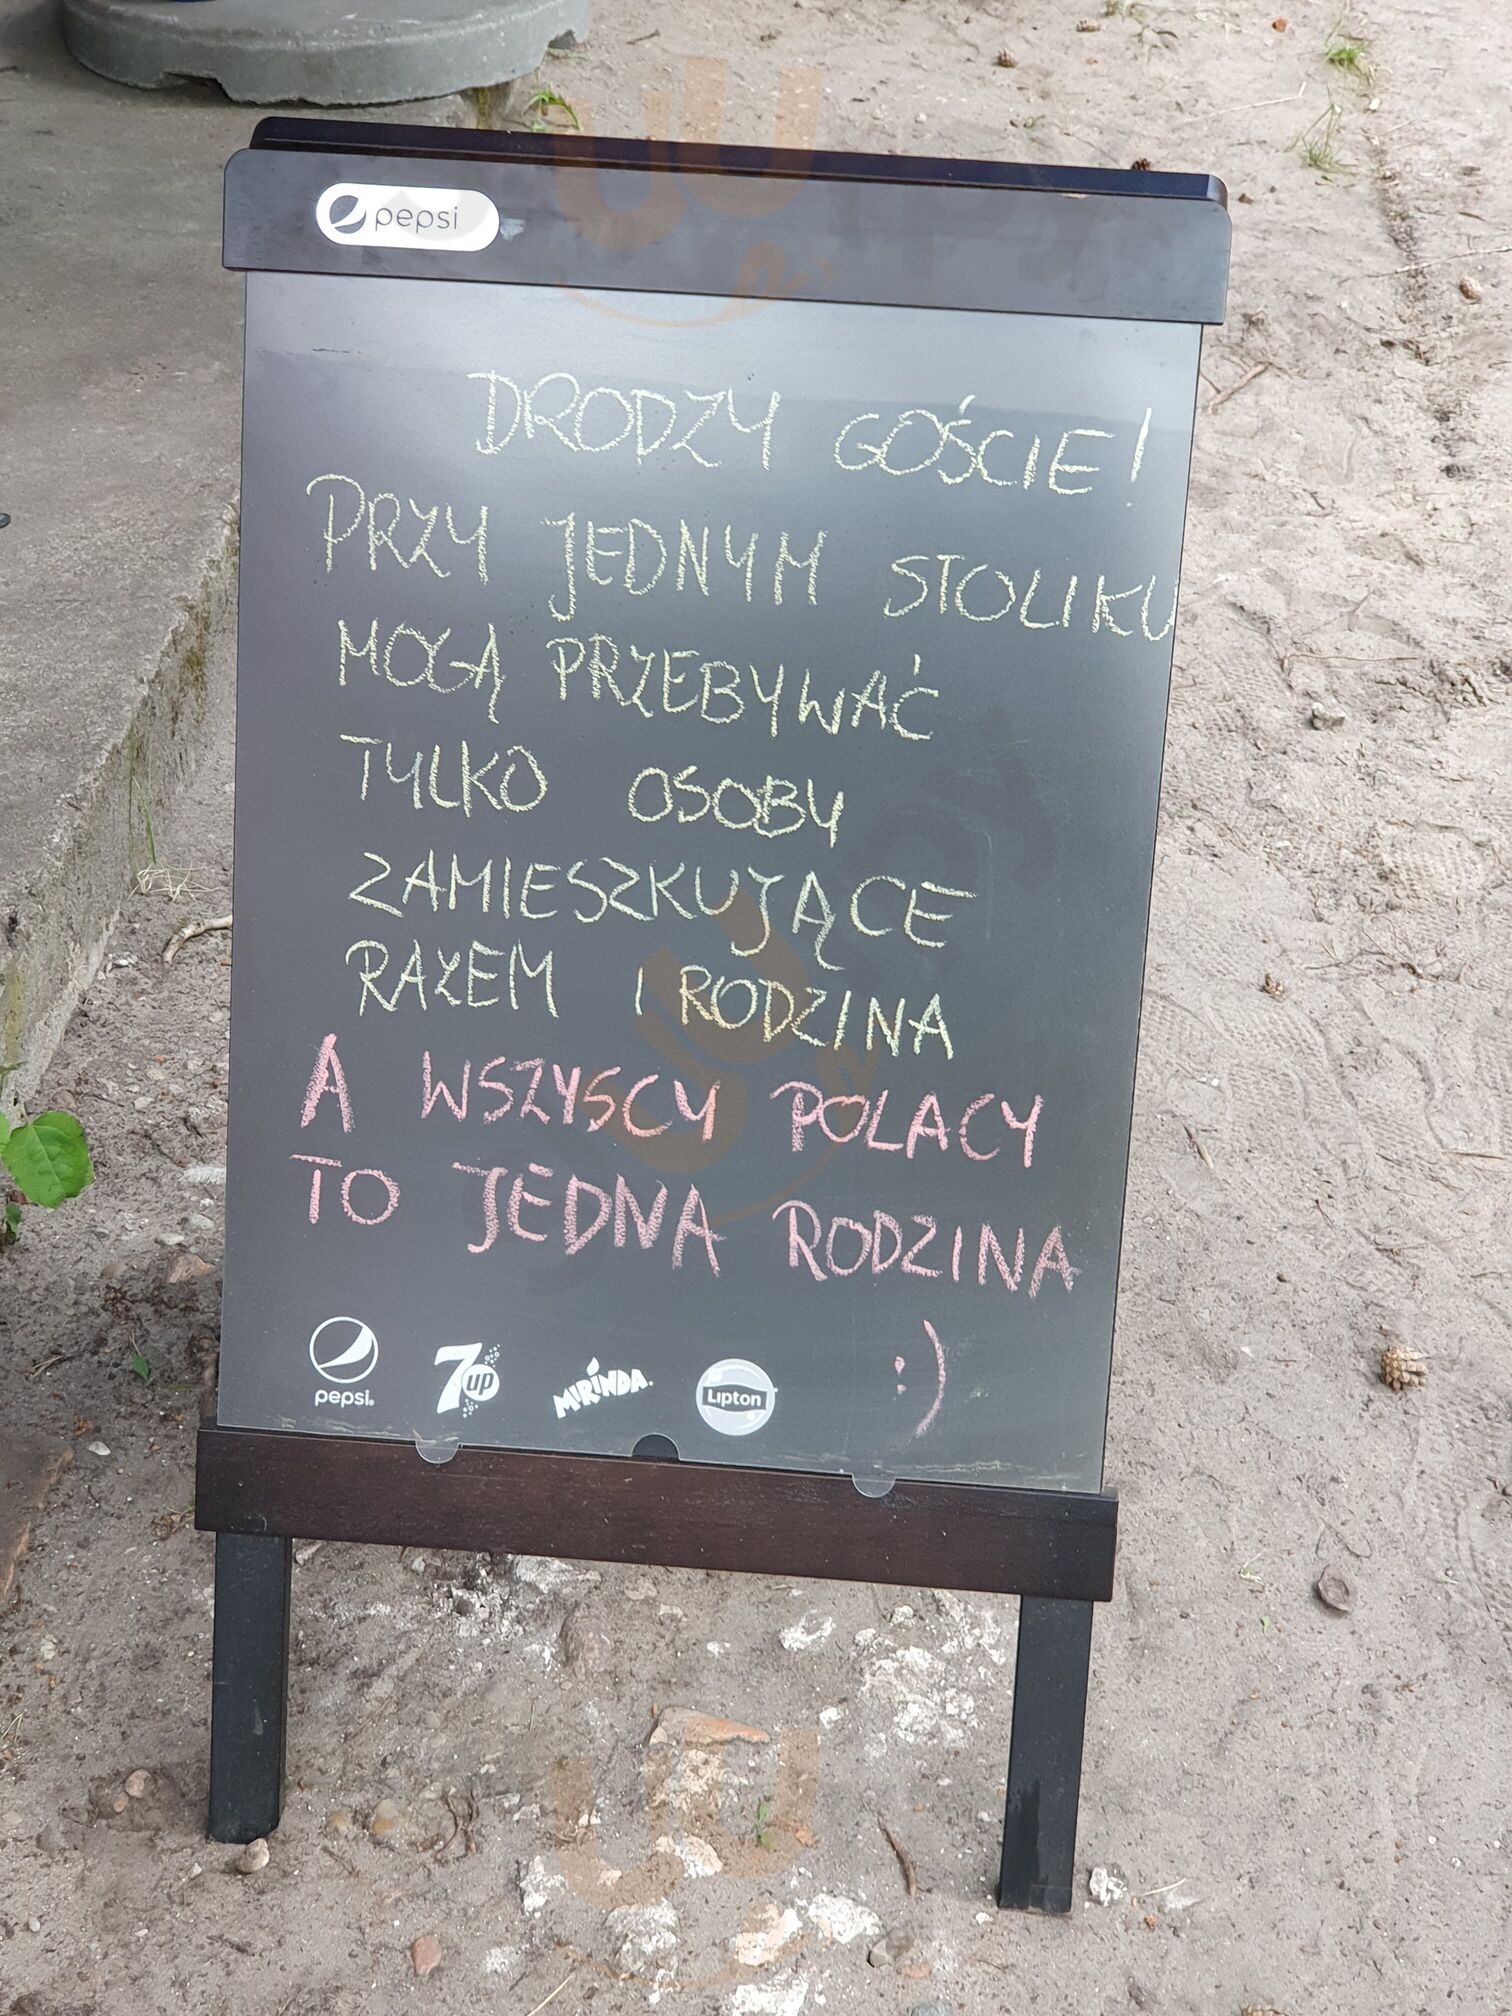 pepsi
DRODZY GOŚCIE!
PRZY JEDNYM STOLIKU
MOGĄ PRZEBYWAĆ
TYLKO OSOBY
ZAMIESZKUJĄCE
RAZEM I RODZINA
A WSZYSCY POLACY
TO JEDNA RODZINA
:)
pepsi
7up
MIRINDA
Lipton